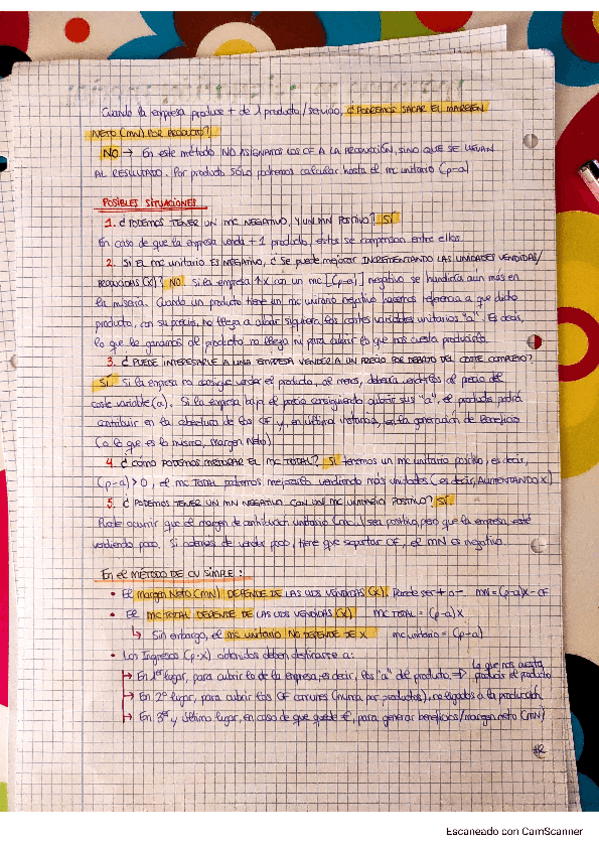 Cuando la empresa produce + de 1 producto/servicio, ¿PODEMOS SACAR EL MARGEN
NETO (MN) POR PRODUCTO?
NO → En este método NO ASIGNAMOS LOS CF A LA PRODUCCIÓN, SINO QUE SE LLEVAN
AL RESULTADO. Por producto SÓLO podremos calcular hasta el mc unitario (p-a)
POSIBLES SITUACIONES
1. ¿PODEMOS TENER UN MC NEGATIVO, Y UN MN POSITIVO? SÍ
En caso de que la empresa venda + 1 producto, estos se compensan entre ellos.
2. SI EL MC UNITARIO ES NEGATIVO, ¿Se puede mejorar INCREMENTANDO LAS UNIDADES VENDIDAS/
PRODUCIDAS (X)? NO Si la empresa ↑X con un mc [(p-a)] negativo se hundiría aún más en
la miseria. Cuando un producto tiene un mc unitario negativo hacemos referencia a que dicho
producto, con su precio, no llega a cubrir siquiera los costes variables unitarios "a". Es decir,
lo que le ganamos al producto no llega ni para cubrir lo que nos cuesta producirlo.
3. ¿PUEDE INTERESARLE A UNA EMPRESA VENDER A UN PRECIO POR DEBAJO DEL COSTE COMPLETO?
SÍ Si la empresa no consigue vender el producto, al menos, debería venderlos al precio del
coste variable (a). Si la empresa baja el precio consiguiendo cubrir sus "a", el producto podrá
contribuir en la cobertura de los CF y, en última instancia, en la generación de Beneficio
(o lo que es lo mismo, Margen Neto)
4. ¿CÓMO PODEMOS MEJORAR EL MC TOTAL? SI tenemos un mc unitario positivo, es decir,
(p-a)>0, el mc TOTAL podemos mejorarlo vendiendo más unidades (es decir, AUMENTANDO X)
5. ¿PODEMOS TENER UN MN NEGATIVO CON UN MC UNITARIO POSITIVO? SÍ
Puede ocurrir que el margen de contribución unitario (mc) sea positivo, pero que la empresa esté
vendiendo poco. Si además de vender poco, tiene que soportar CF, el MN es negativo.
En el MÉTODO DE CV SIMPLE:
• El Margen Neto (MN) DEPENDE DE LAS UDS VENDIDAS (X). Puede ser + o - MN=(p-a)X - CF
• El mc TOTAL DEPENDE DE LAS UDS VENDIDAS (X) mc TOTAL = (p-a)X
↳ Sin embargo, el mc unitario NO DEPENDE DE X mc unitario = (p-a)
• Los Ingresos (p·X) obtenidos deben destinarse a:
→ En 1er lugar, para cubrir lo de la empresa, es decir, los "a" del producto. → lo que nos cuesta producir el producto
→ En 2º lugar, para cubrir los CF comunes (nunca por productos), no ligados a la producción
→ En 3er y último lugar, en caso de que quede €, para generar beneficios/margen neto (MN)
Escaneado con CamScanner